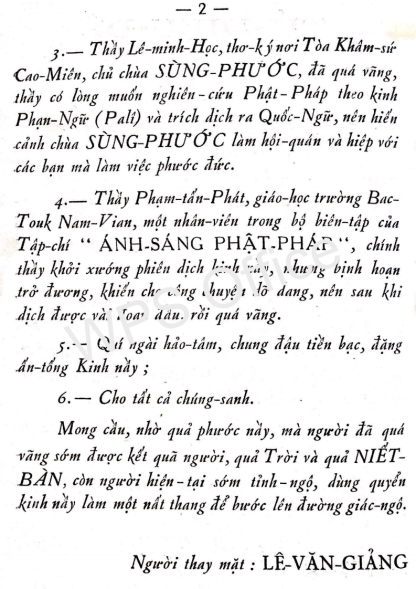 — 2 —
3.— Thầy Lê-minh-Học, thơ-ký nơi Tòa Khâm-sứ
Cao-Miên, chủ chùa SÙNG-PHƯỚC, đã quá vãng,
thầy có lòng muốn nghiên-cứu Phật-Pháp theo kinh
Phạn-Ngữ (Pali) và trích dịch ra Quốc-Ngữ, nên hiến
cảnh chùa SÙNG-PHƯỚC làm hội-quán và hiệp với
các bạn mà làm việc phước đức.
4.— Thầy Phạm-tấn-Phát, giáo-học trường Bac-
Touk Nam-Vian, một nhân-viên trong bộ biên-tập của
Tập-chí “ ÁNH-SÁNG PHẬT-PHÁP “, chính
thầy khởi xướng phiên dịch kinh này, nhưng bịnh hoạn
trở đương, khiến cho công chuyện dở dang, nên sau khi
dịch được vài đoạn đầu, rồi quá vãng.
5.— Quí ngài hảo-tâm, chung đậu tiền bạc, đặng
ấn-tống Kinh nầy ;
6.— Cho tất cả chúng-sanh.
Mong cầu, nhờ quả phước nầy, mà người đã quá
vãng sớm được kết quả người, quả Trời và quả NIẾT-
BÀN, còn người hiện-tại sớm tỉnh-ngộ, dùng quyển
kinh nầy làm một nất thang để bước lên đường giác-ngộ.
Người thay mặt : LÊ-VĂN-GIẢNG
WPS Office